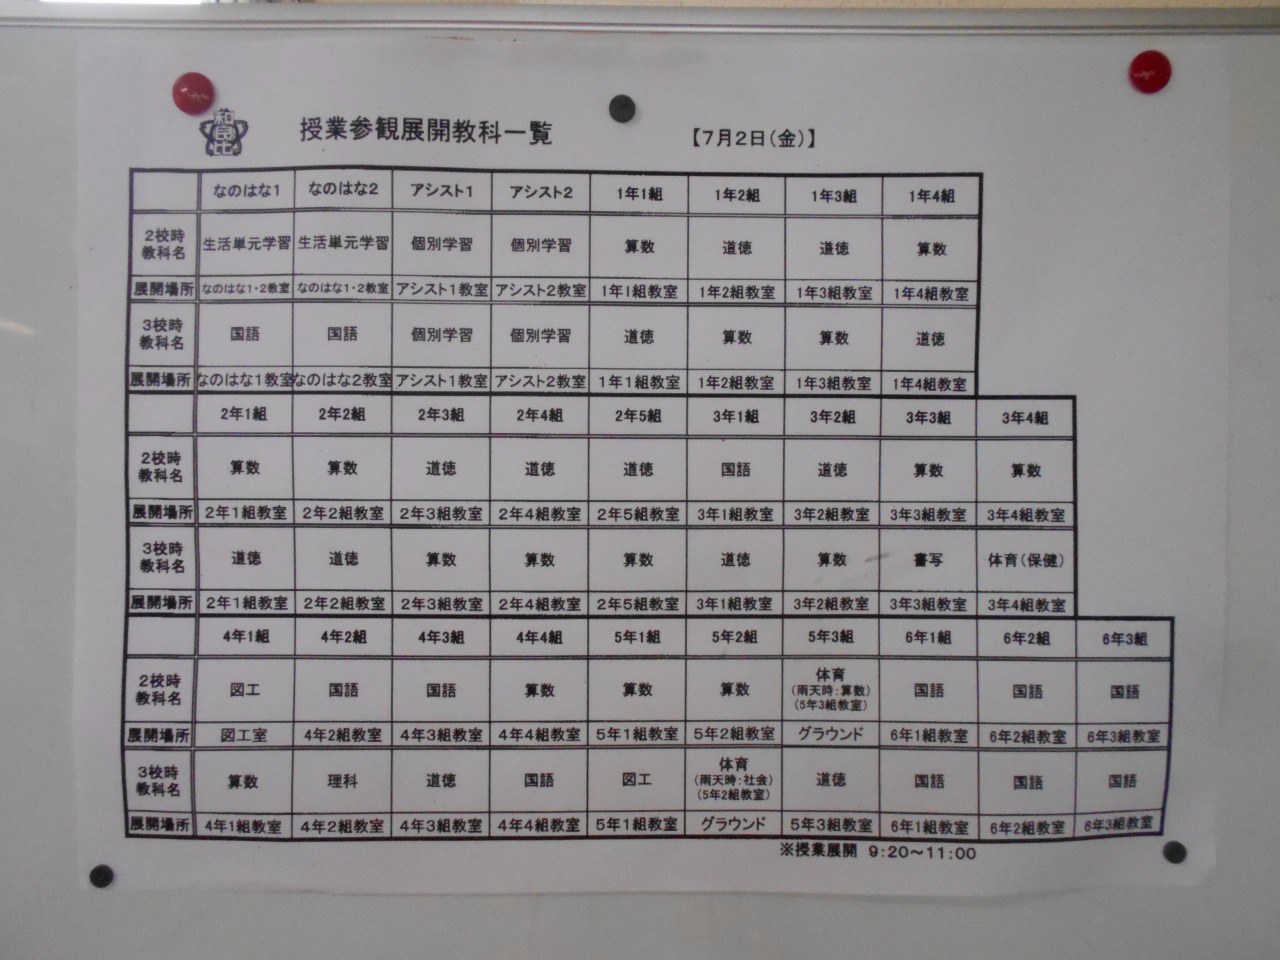 和良比
授業参観展開教科一覧 【7月2日(金)】
なのはな1 なのはな2 アシスト1 アシスト2 1年1組 1年2組 1年3組 1年4組
2校時教科名 生活単元学習 生活単元学習 個別学習 個別学習 算数 道徳 道徳 算数
展開場所 なのはな1・2教室 なのはな1・2教室 アシスト1教室 アシスト2教室 1年1組教室 1年2組教室 1年3組教室 1年4組教室
3校時教科名 国語 国語 個別学習 個別学習 道徳 算数 算数 道徳
展開場所 なのはな1教室 なのはな2教室 アシスト1教室 アシスト2教室 1年1組教室 1年2組教室 1年3組教室 1年4組教室
2年1組 2年2組 2年3組 2年4組 2年5組 3年1組 3年2組 3年3組 3年4組
2校時教科名 算数 算数 道徳 道徳 道徳 国語 道徳 算数 算数
展開場所 2年1組教室 2年2組教室 2年3組教室 2年4組教室 2年5組教室 3年1組教室 3年2組教室 3年3組教室 3年4組教室
3校時教科名 道徳 道徳 算数 算数 算数 道徳 算数 書写 体育(保健)
展開場所 2年1組教室 2年2組教室 2年3組教室 2年4組教室 2年5組教室 3年1組教室 3年2組教室 3年3組教室 3年4組教室
4年1組 4年2組 4年3組 4年4組 5年1組 5年2組 5年3組 6年1組 6年2組 6年3組
2校時教科名 図工 国語 国語 算数 算数 算数 体育(雨天時:算数)(5年3組教室) 国語 国語 国語
展開場所 図工室 4年2組教室 4年3組教室 4年4組教室 5年1組教室 5年2組教室 グラウンド 6年1組教室 6年2組教室 6年3組教室
3校時教科名 算数 理科 道徳 国語 図工 体育(雨天時:社会)(5年2組教室) 道徳 国語 国語 国語
展開場所 4年1組教室 4年2組教室 4年3組教室 4年4組教室 5年1組教室 グラウンド 5年3組教室 6年1組教室 6年2組教室 6年3組教室
※授業展開 9:20～11:00